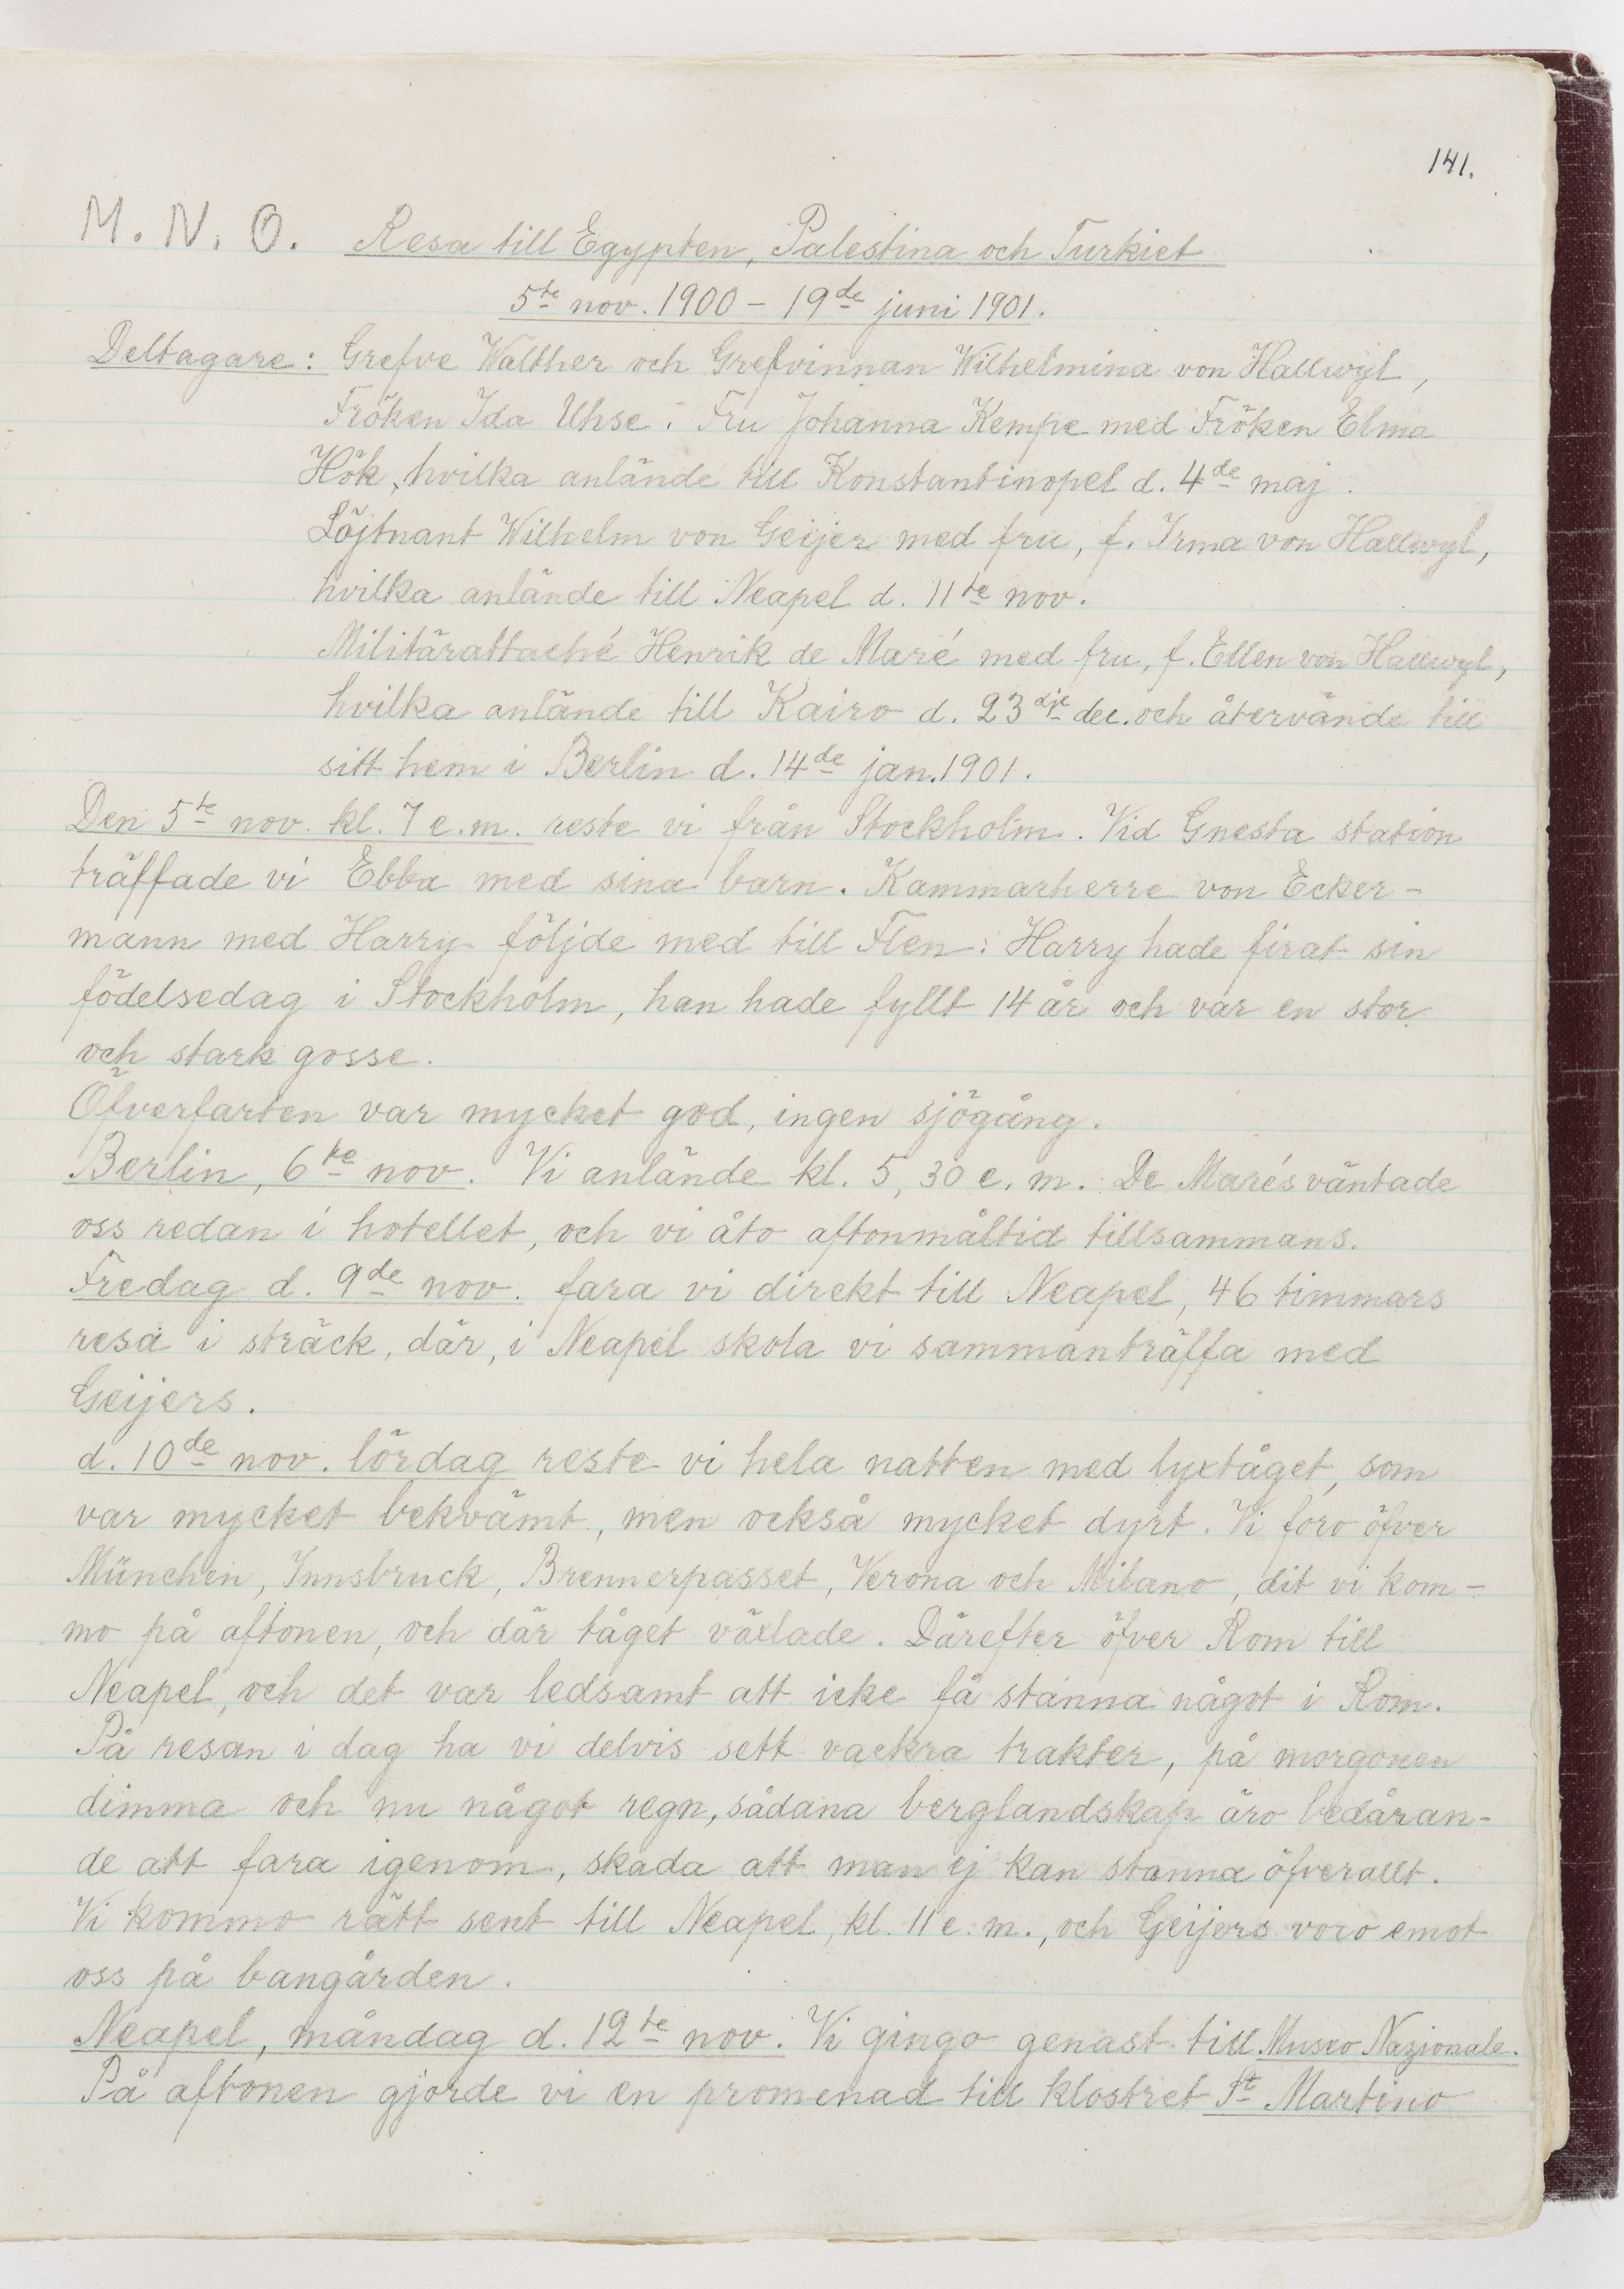 141.
M. N. O. Resa till Egypten, Palestina och Turkiet
5te nov. 1900 – 19de juni 1901.
Deltagare: Grefve Walther och Grefvinnan Wilhelmina von Hallwyl,
Fröken Ida Uhse. Fru Johanna Kempe med Fröken Elma
Hök, hvilka anlände till Konstantinopel d. 4de maj.
Löjtnant Wilhelm von Geijer med fru, f. Irma von Hallwyl,
hvilka anlände till Neapel d. 11te nov.
Militärattaché Henrik de Maré med fru, f. Ellen von Hallwyl,
hvilka anlände till Kairo d. 23dje dec. och återvände till
sitt hem i Berlin d. 14de jan. 1901.
Den 5te nov. kl. 7 e.m. reste vi från Stockholm. Vid Gnesta station
träffade vi Ebba med sina barn. Kammarherre von Ecker-
mann med Harry följde med till Flen: Harry hade firat sin
födelsedag i Stockholm, han hade fyllt 14 år och var en stor
och stark gosse.
Öfverfarten var mycket god, ingen sjögång.
Berlin, 6te nov. Vi anlände kl. 5,30 e.m. De Marés väntade
oss redan i hotellet, och vi åto aftonmåltid tillsammans.
Fredag d. 9de nov. fara vi direkt till Neapel, 46 timmars
resa i sträck, där, i Neapel skola vi sammanträffa med
Geijers.
d. 10de nov. lördag reste vi hela natten med lyxtåget, som
var mycket bekvämt, men också mycket dyrt. Vi foro öfver
München, Innsbruck, Brennerpasset, Verona och Milano, dit vi kom-
mo på aftonen, och där tåget växlade. Därefter öfver Rom till
Neapel, och det var ledsamt att icke få stanna något i Rom.
På resan i dag ha vi delvis sett vackra trakter, på morgonen
dimma och nu något regn, sådana berglandskap äro bedåran-
de att fara igenom, skada att man ej kan stanna öfverallt.
Vi kommo rätt sent till Neapel, kl. 11 e.m., och Geijers voro emot
oss på bangården.
Neapel, måndag d. 12te nov. Vi gingo genast till Museo Nazionale.
På aftonen gjorde vi en promenad till klostret St Martino